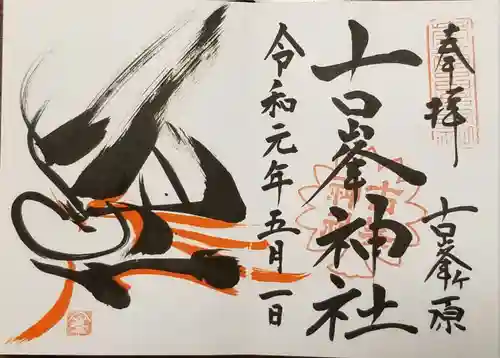 奉拝
古峯ヶ原
古峯神社
令和元年五月一日